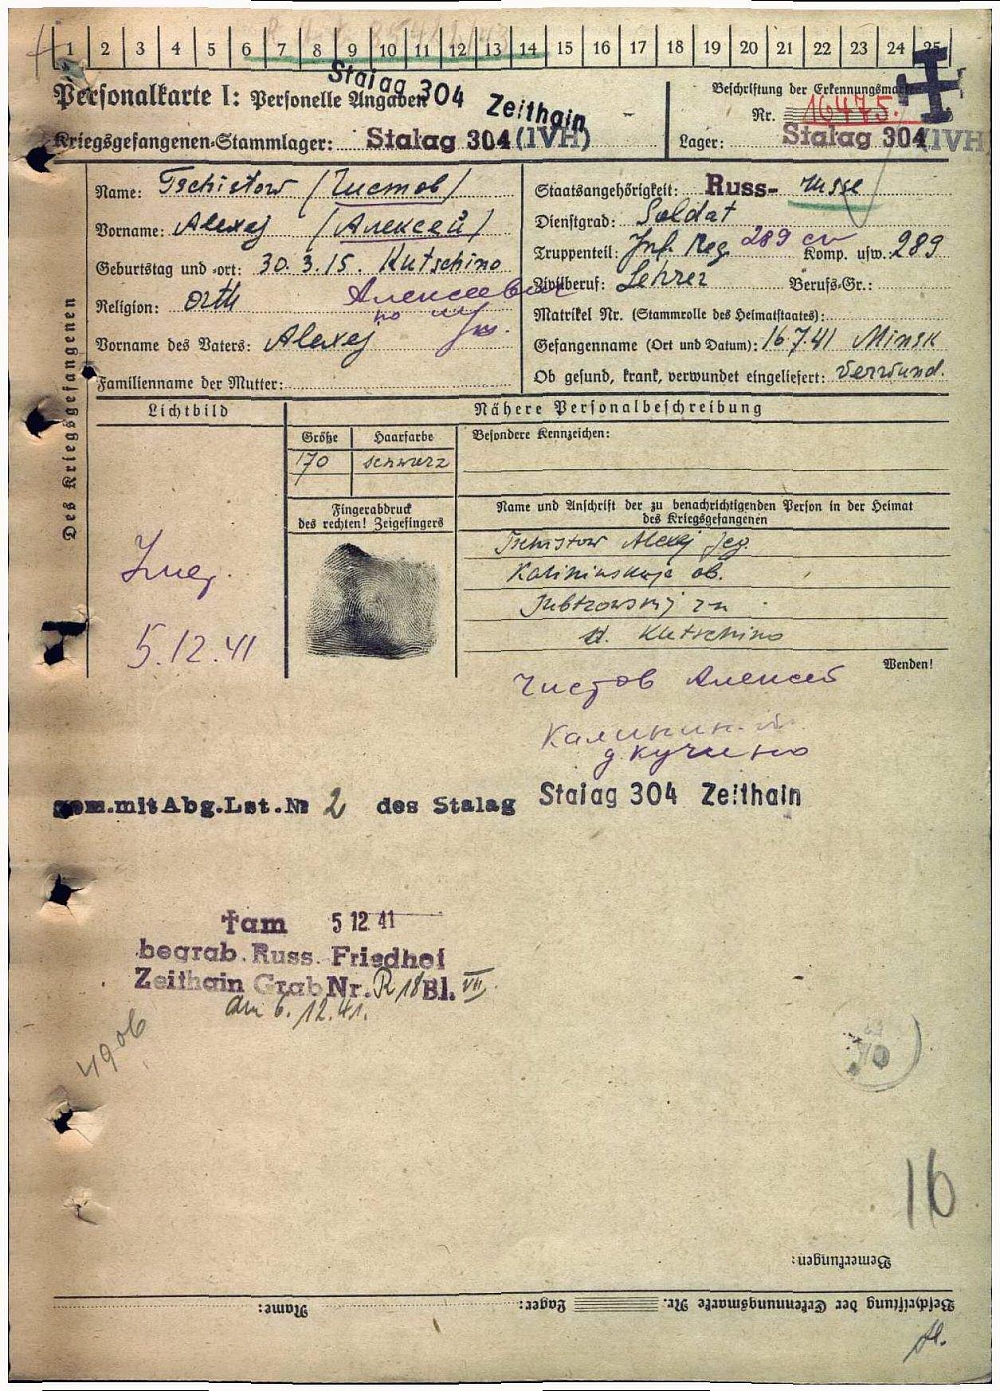 1 2 3 4 5 6 7 8 9 10 11 12 13 14 15 16 17 18 19 20 21 22 23 24 25
Stalag 304 Zeithain
Personalkarte I: Personelle Angaben
Kriegsgefangenen-Stammlager: Stalag 304 (IVH)
Beschriftung der Erkennungsmarke
Nr. 16475.
Lager: Stalag 304 (IVH)
Des Kriegsgefangenen
Name: Tschistow (Чистов)
Vorname: Alexej (Алексей)
Geburtstag und -ort: 30.3.15. Kutschino
Religion: orth
Алексеевич
Vorname des Vaters: Alexej
Familienname der Mutter:
Staatsangehörigkeit: Russ- russe
Dienstgrad: Soldat
Truppenteil: Inf. Reg. 289 Komp. usw.: 289
Zivilberuf: Lehrer Berufs-Gr.:
Matrikel Nr. (Stammrolle des Heimatstaates):
Gefangenname (Ort und Datum): 16.7.41 Minsk
Ob gesund, krank, verwundet eingeliefert: verwund.
Lichtbild
Nähere Personalbeschreibung
Größe Haarfarbe
170 schwarz
Besondere Kennzeichen:
Fingerabdruck
des rechten! Zeigefingers
Name und Anschrift der zu benachrichtigenden Person in der Heimat
des Kriegsgefangenen
Tschistow Alexej Jeg.
Kalininskaje ob.
Kutschino
5.12.41
Wenden!
Чистов Алексей
д. Кучино
gem. mit Abg. Lst. № 2 des Stalag Stalag 304 Zeithain
†am 5 12 41
begrab. Russ. Friedhof
Zeithain Grab Nr. R 18 Bl. VII.
am 6.12.41.
4906
16
Bemerkungen:
Beschriftung der Erkennungsmarke Nr. Lager: Name: